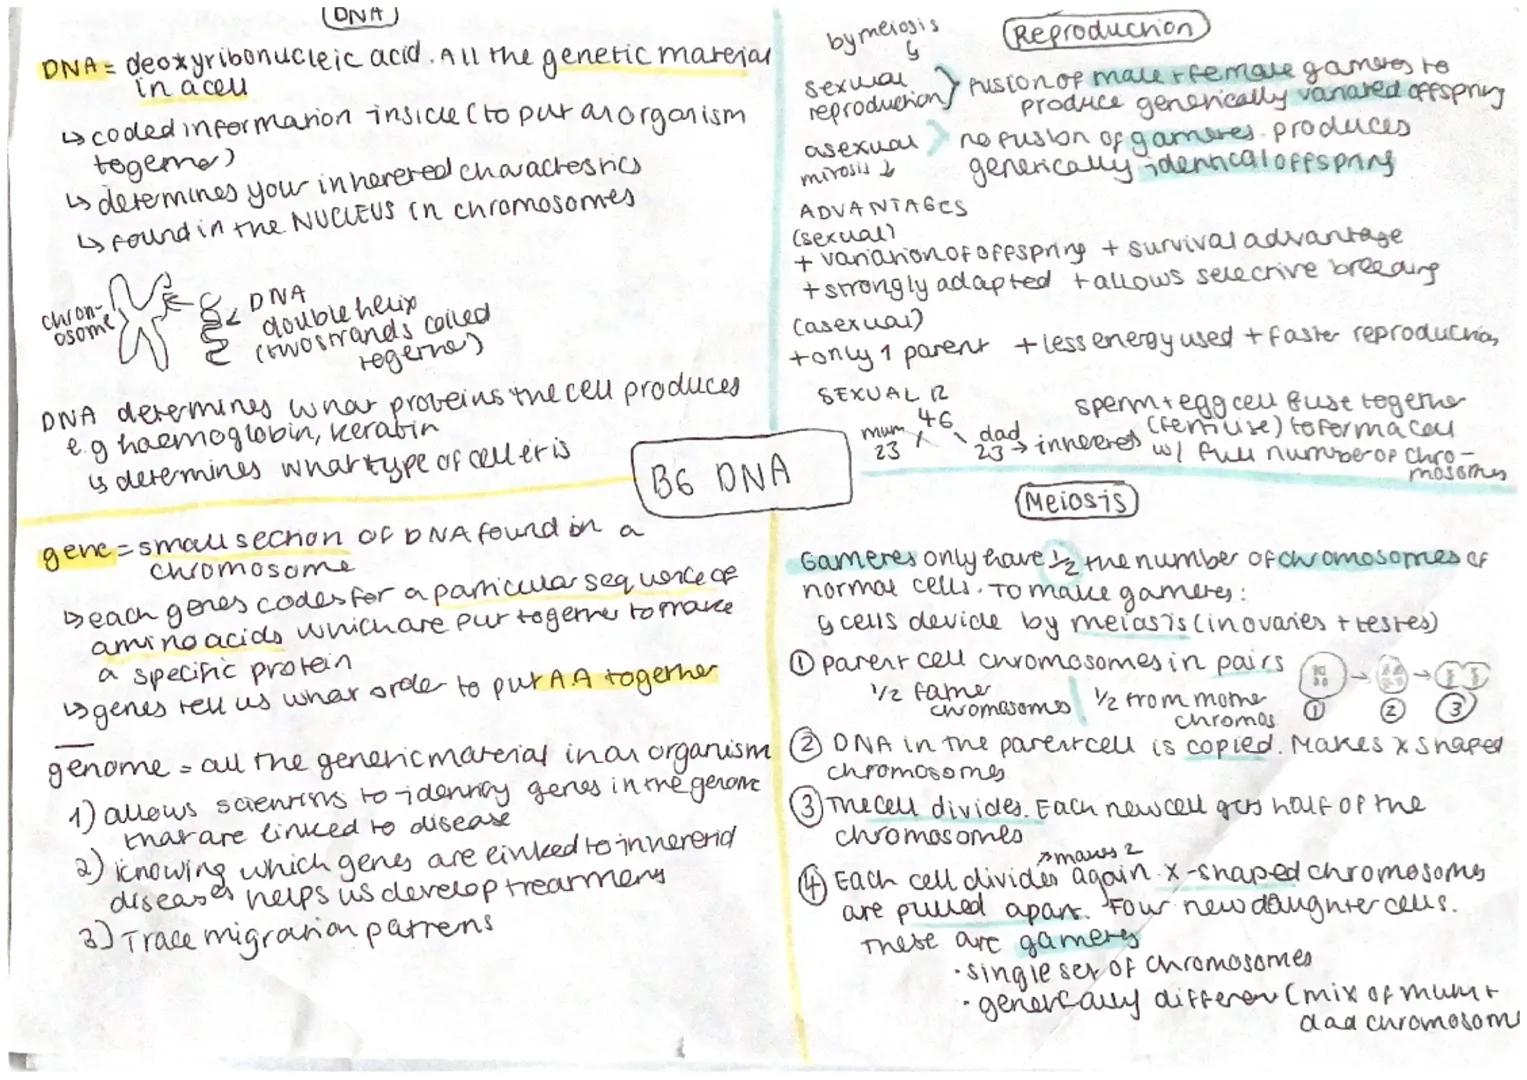 DNA
DNA = deoxyribonucleic acid. All the genetic material
in a cell
↳ coded information inside (to put an organism
together)
↳ determines your inhereted charactestics
↳ found in the NUCLEUS in chromosomes
chrom-
osome
DNA
double helix
(two strands coiled
together)
DNA determines what proteins the cell produces
e.g haemoglobin, keratin
↳ determines what type of cell it is
gene = small section of DNA found in a
chromosome
↳ each genes codes for a particular sequence of
amino acids which are put together to make
a specific protein
↳ genes tell us what order to put A.A together
genome = all the genetic material in an organism
1) allows scientists to identify genes in the genome
that are linked to disease
2) knowing which genes are linked to inhereted
diseases helps us develop treatments
3) Trace migration patterns
B6 DNA
Reproduction
by meiosis
sexual
reproduction
fusion of male + female gametes to
produce genetically variated offspring
asexual
mitosis
no fusion of gametes. produces
genetically identical offspring
ADVANTAGES
(sexual)
+ variation of offspring + survival advantage
+ strongly adapted + allows selective breeding
(asexual)
+ only 1 parent + less energy used + faster reproduction
SEXUAL R
46
mum
23
dad
23 → inhereted
sperm + egg cell fuse together
(fertilise) to form a cell
w/ full number of chro-
mosomes
Meiosis
Gametes only have 1/2 the number of chromosomes of
normal cells. To make gametes:
↳ cells devide by meiosis (in ovaries + testes)
① parent cell chromosomes in pairs
1/2 father
chromosomes
1/2 from mother
chromos
① ② ③
② DNA in the parent cell is copied. Makes x shaped
chromosomes
③ The cell divides. Each new cell gets half of the
chromosomes
→ makes 2
④ Each cell divides again. X-shaped chromosomes
are pulled apart. Four new daughter cells.
These are gametes
• single set of chromosomes
• genetically different (mix of mum +
dad chromosome